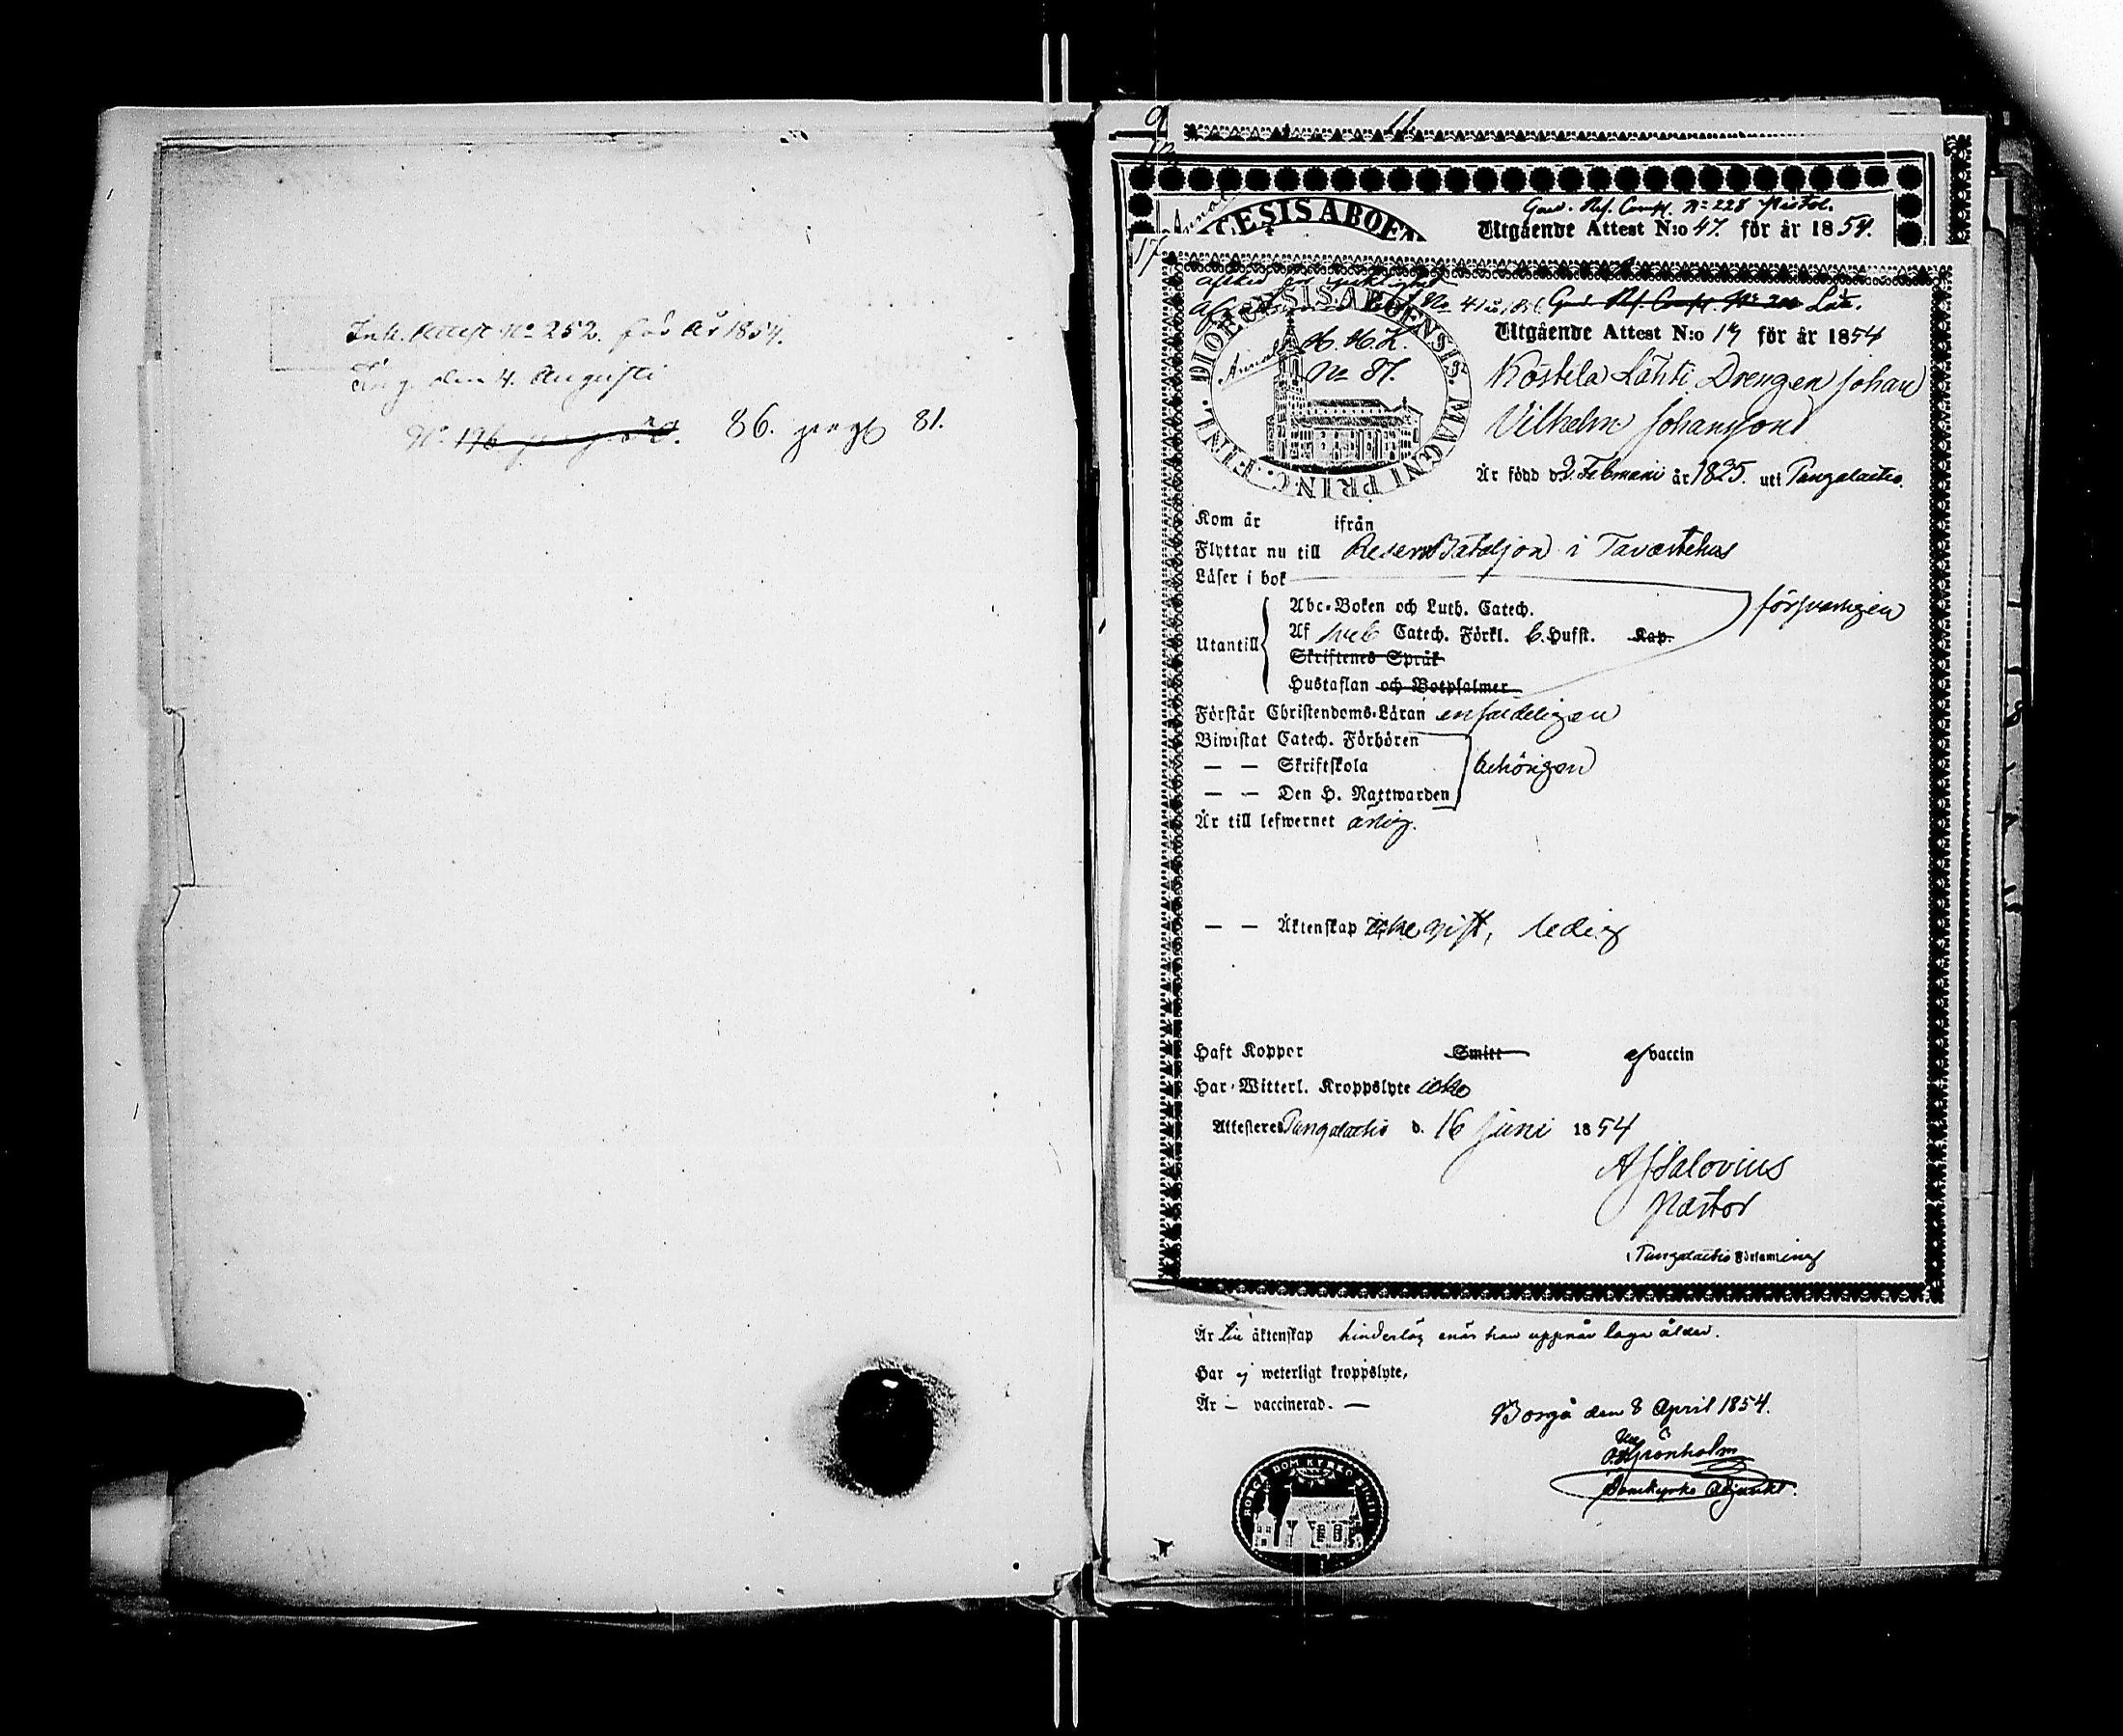 Ink. Attest No 252. för år 1854.
den 4. Augusti
No 196
86. pag 81.
9
11
17
CESIS ABOEN
Utgående Attest N:o 47. för år 1854.
DIOECESIS ABOENSIS. MAGNI PRINC. FINL.
No 87.
Utgående Attest N:o 17 för år 1854
Köstilä Lahti Drengen Johan
Vilhelm Johansson
Är född d. 3. Februari år 1835. uti Tungalaitio.
Kom år ifrån
Flyttar nu till Reserv Bataljon i Tavastehus
Läser i bok
Abc-Boken och Luth. Catech.
Utantill
Af Sveb Catech. Förkl. 6. Hufst. Kap.
Skriftenes Språk
Hustaflan och Botpsalmer
försvarligen
Förstår Christendoms-Läran enfaldeligen
Biwistat Catech. Förhören
— — Skriftskola
behörigen
— — Den H. Nattwarden
Är till lefwernet ärlig.
— — Äktenskap icke gift, ledig
Haft Koppor Smitt af vaccin
Har Witterl. Kroppslyte icke
Attesteres d. 16 Juni 1854
Pastor
i Församling
Är till äktenskap hinderlös enär han uppnår laga ålder.
Har ej weterligt kroppslyte,
Är — vaccinerad. —
Borgå den 8 April 1854.
Grönholm
Domkyrko Adjunkt.
BORGÅ DOM KYRKO SIGILL